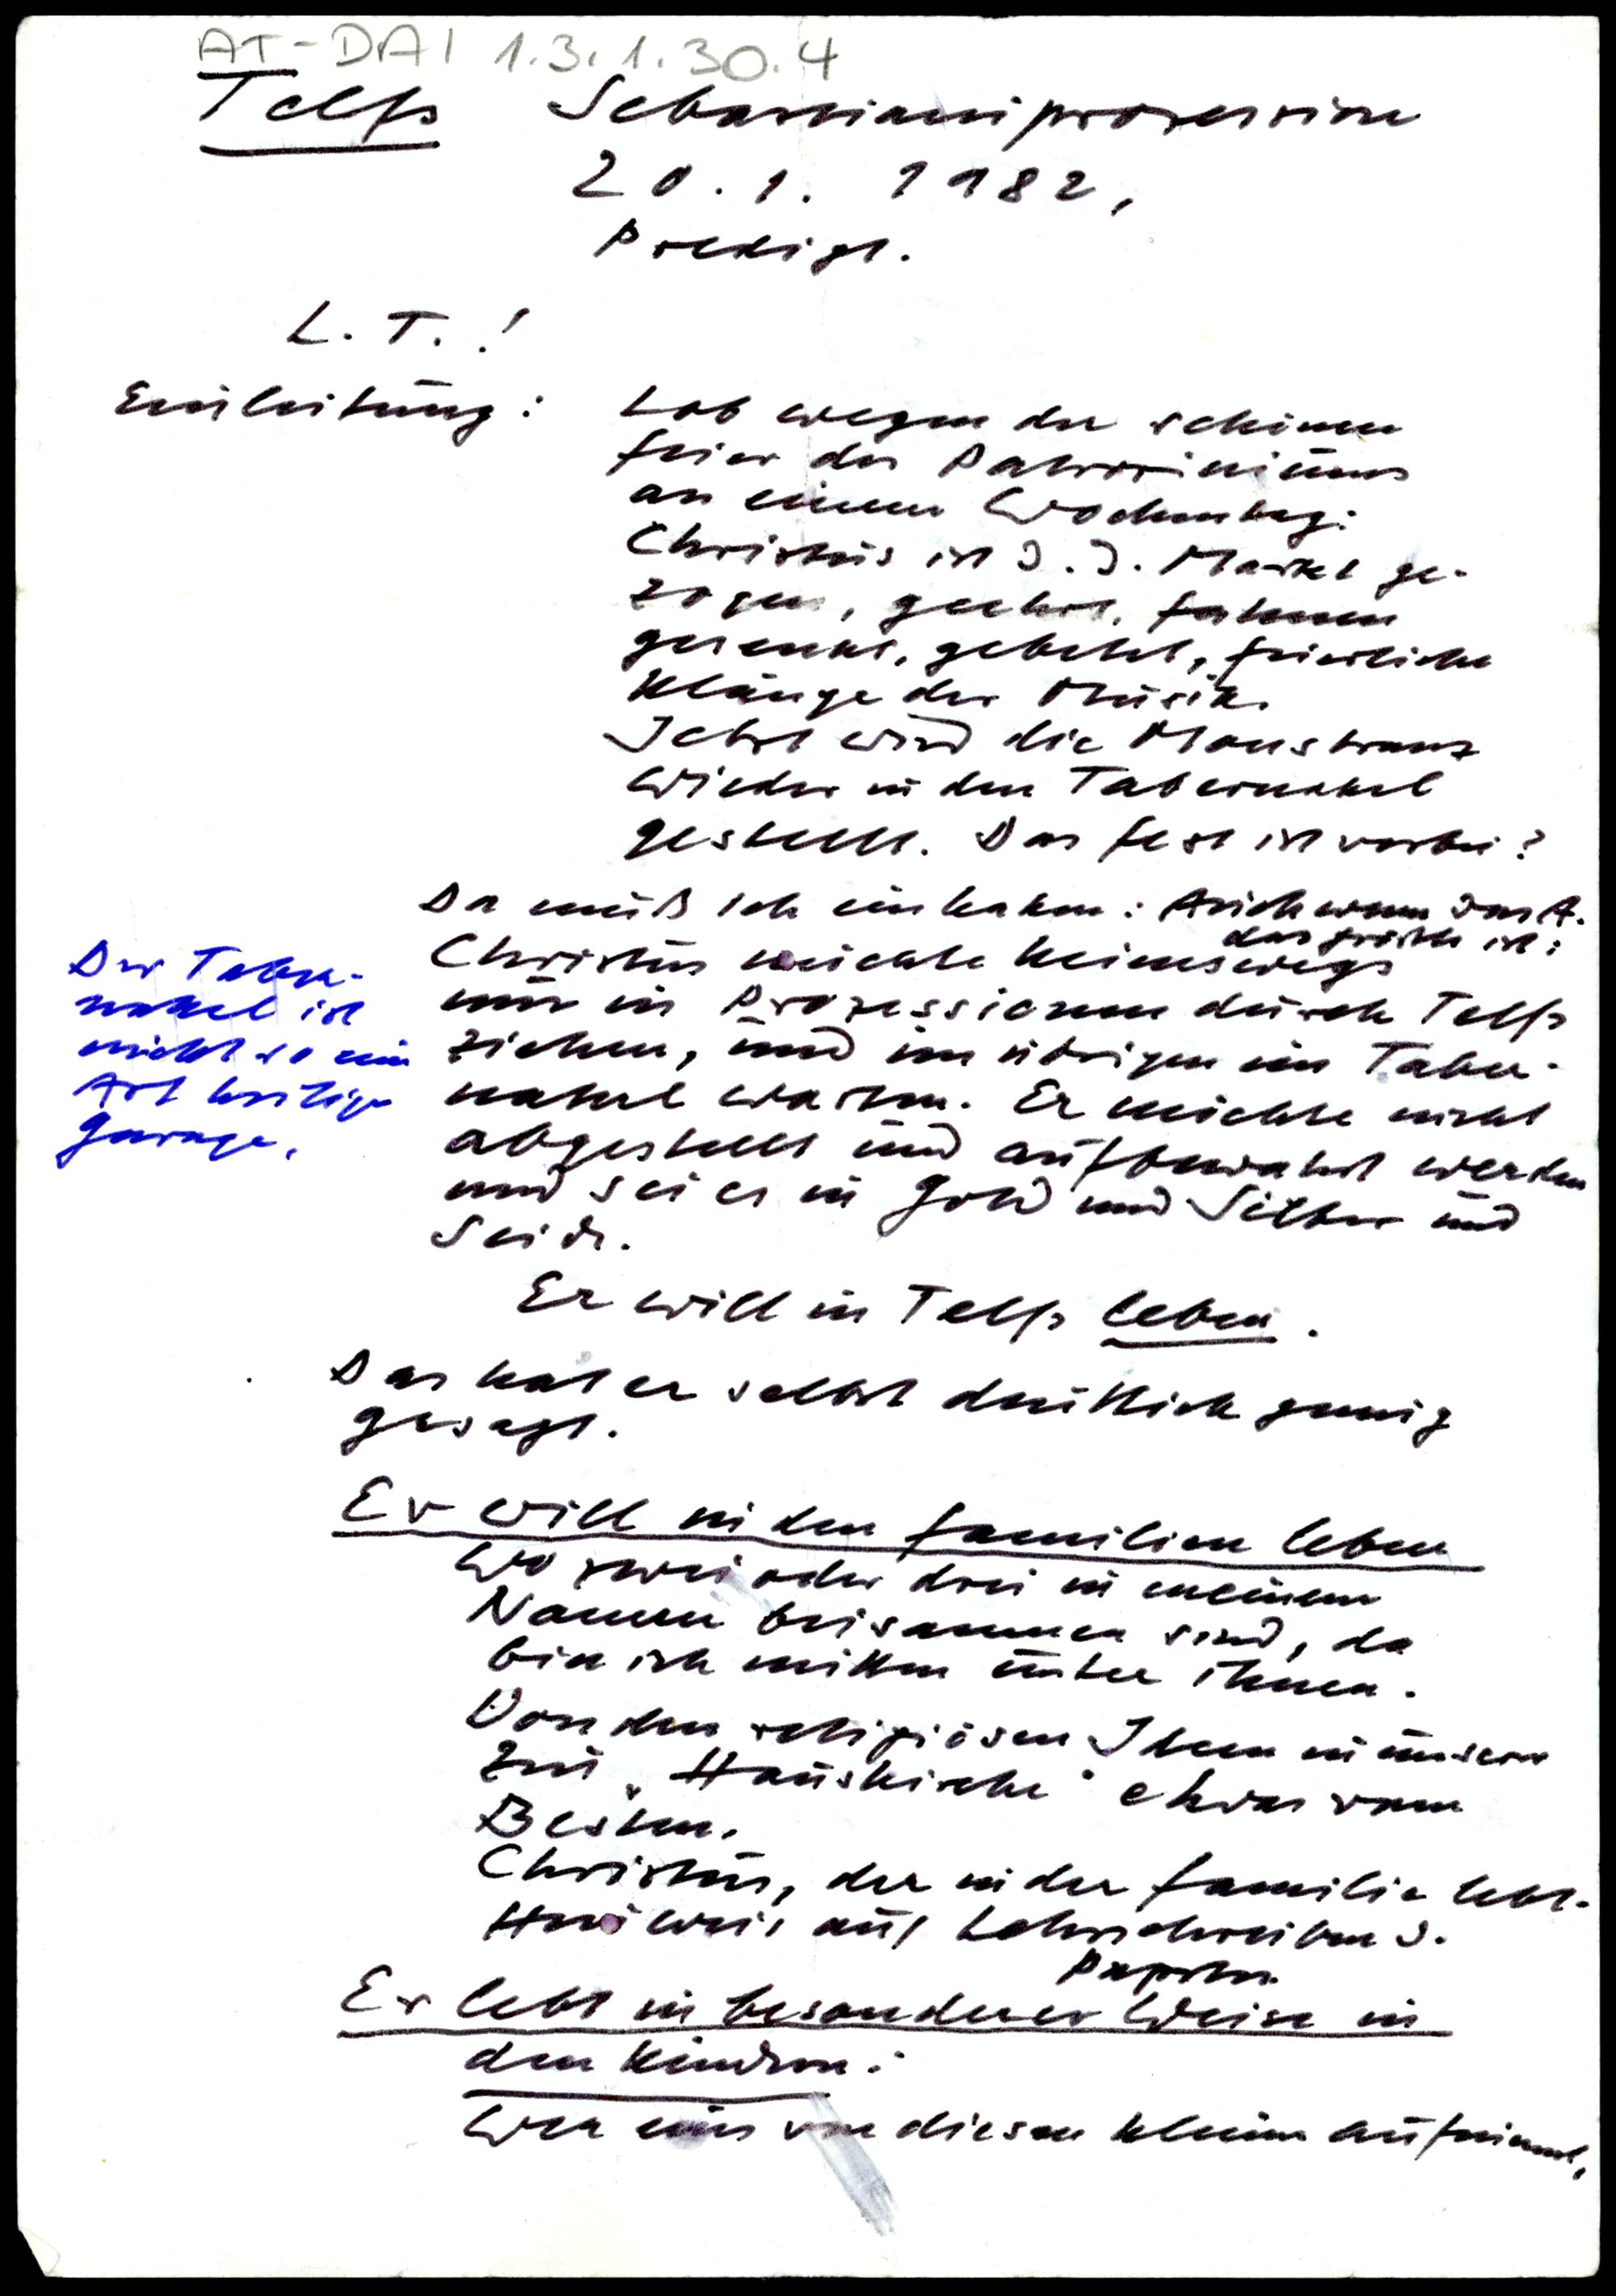 AT-DAI 1.3.1.30.4
Telfs Sebastianiprozession
20.1.1982,
Predigt.
L. T.!
Einleitung: Lob wegen der schönen
Feier des Patroziniums
an einem Wochentag:
Christus ist d. d. Markt ge-
zogen, geehrt, Fahnen
gesenkt, gebetet, feierliche
Klänge der Musik.
Jetzt wird die Monstranz
wieder in den Tabernakel
gestellt. Das Fest ist vorbei?
Da muß ich einhaken: Auch wenn das A.
das größte ist:
Christus möchte keineswegs
nur in Prozessionen durch Telfs
ziehen, und im übrigen im Taber-
nakel warten. Er möchte nicht
abgestellt und aufbewahrt werden
und sei es in Gold und Silber und
Seide.
Der Taber-
nakel ist
nicht so eine
Art heilige
Garage.
Er will in Telfs leben.
Das hat er selbst deutlich genug
gesagt.
Er will in den Familien leben
Wo zwei oder drei in meinem
Namen beisammen sind, da
bin ich mitten unter ihnen.
Von den religiösen Ideen in unserer
Zeit "Hauskirche" etwas vom
Besten.
Christus, der in der Familie lebt.
Hinweis auf Lehrschreiben d.
Papstes.
Er lebt in besonderer Weise in
den Kindern:
Wer eins von diesen Kleinen aufnimmt,